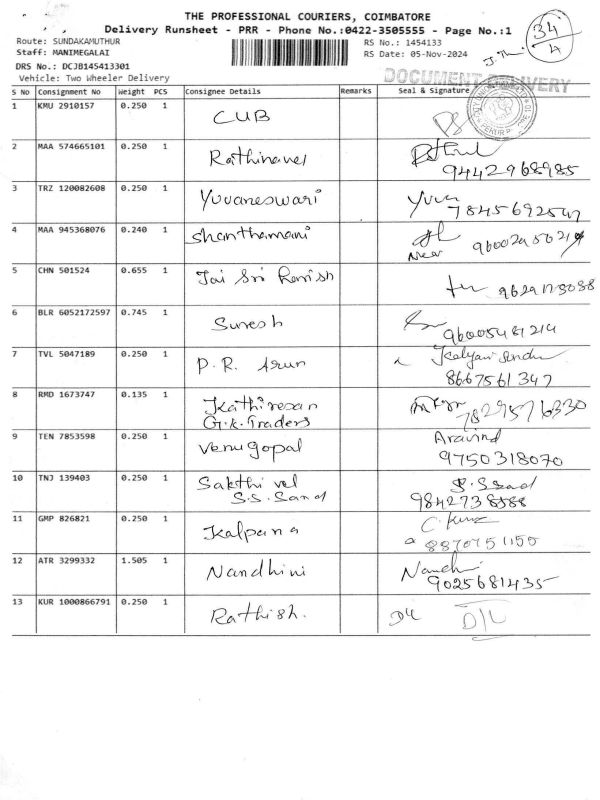 THE PROFESSIONAL COURIERS, COIMBATORE
Delivery Runsheet - PRR - Phone No.:0422-3505555 - Page No.:1
34/4
Route: SUNDAKAMUTHUR
RS No.: 1454133
Staff: MANIMEGALAI
RS Date: 05-Nov-2024
DRS No.: DCJB145413301
Vehicle: Two Wheeler Delivery
DOCUMENT DELIVERY
S No Consignment No Weight PCS Consignee Details Remarks Seal & Signature
1 KMU 2910157 0.250 1 CUB
2 MAA 574665101 0.250 1 Rathinavel
9442968985
3 TRZ 120082608 0.250 1 Yuvaneswari Yuva
4 MAA 945368076 0.240 1 Shanthamani
5 CHN 501524 0.655 1 Jai Sri Harish
6 BLR 6052172597 0.745 1 Suresh
96005481214
7 TVL 5047189 0.250 1 P.R. Arun
8667561347
8 RMD 1673747 0.135 1 Kathiresan
G.K. Traders 7829576330
9 TEN 7853598 0.250 1 Venugopal Aravind
9750318070
10 TNJ 139403 0.250 1 Sakthivel
S.S. Sand
11 GMP 826821 0.250 1 Kalpana
12 ATR 3299332 1.505 1 Nandhini
9025681435
13 KUR 1000866791 0.250 1 Rathish. D/L D/L